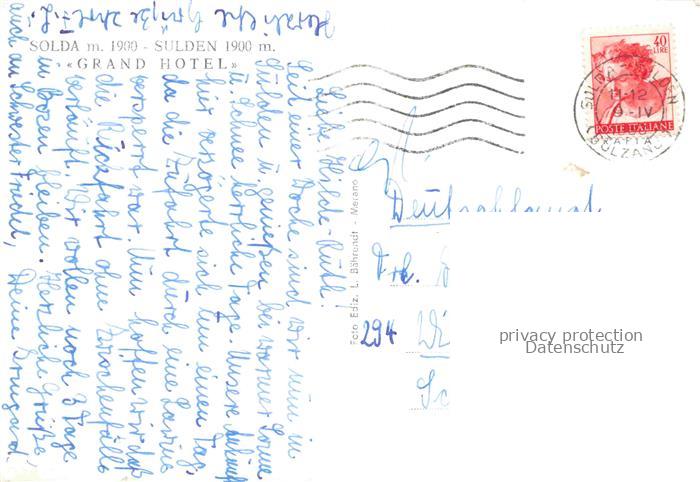 SOLDA m. 1900 - SULDEN 1900 m.
«GRAND HOTEL»
Liebe Hilde-Ruth!
Seit einer Woche sind wir nun in
Sulden u. genießen bei warmer Sonne
u. Schnee herrliche Tage. Unsere Ankunft
hier verzögerte sich um einen Tag,
da die Zufahrt durch eine Lawine
versperrt war. Nun hoffen wir daß
die Rückfahrt ohne Zwischenfälle
verläuft. Wir wollen noch 3 Tage
in Bozen bleiben. Herzliche Grüße,
auch an Schwester Friedel, Deine Irmgard.
Herzliche Grüße
Foto Ediz. L. Bährendt - Merano
40
LIRE
POSTE ITALIANE
SULDEN
11-12
9-IV
BOLZANO
Deutschland
294
privacy protection
Datenschutz